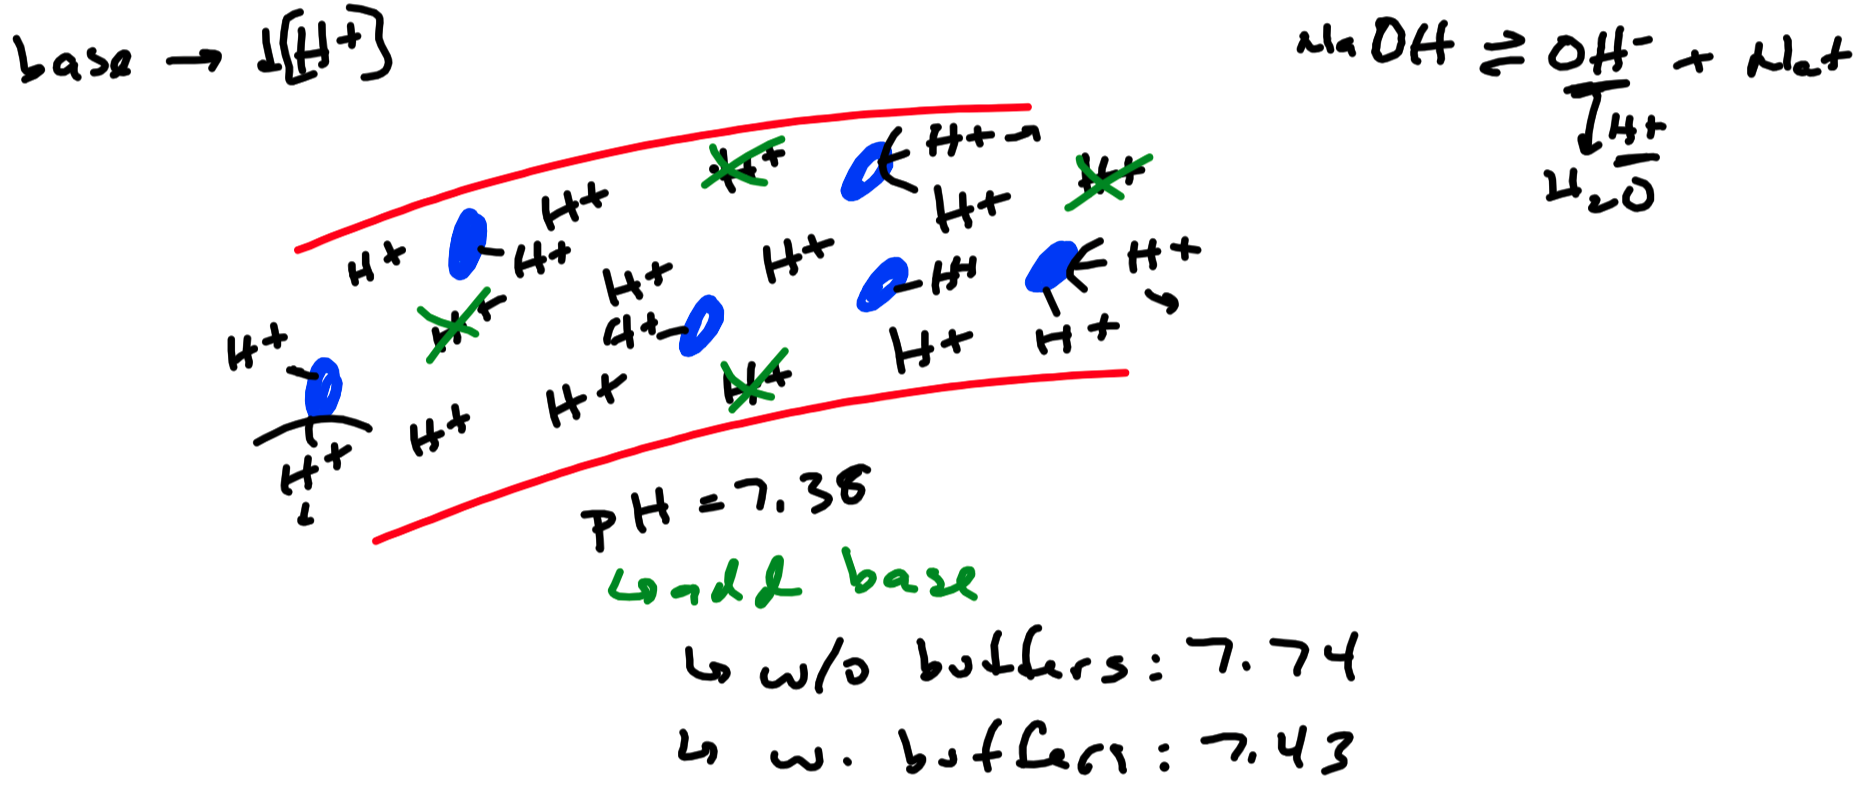 base → ↓[H+]
NaOH ⇌ OH- + Na+
H+
H2O
H+ H+ →
H+ H+
H+ H+
H+ H+
H+ H+ H+ H+
H+ H+ H+
H+ H+ H+ H+
H+ H+
H+ H+
H+
pH = 7.38
↳ add base
↳ w/o buffers: 7.74
↳ w. buffers: 7.43